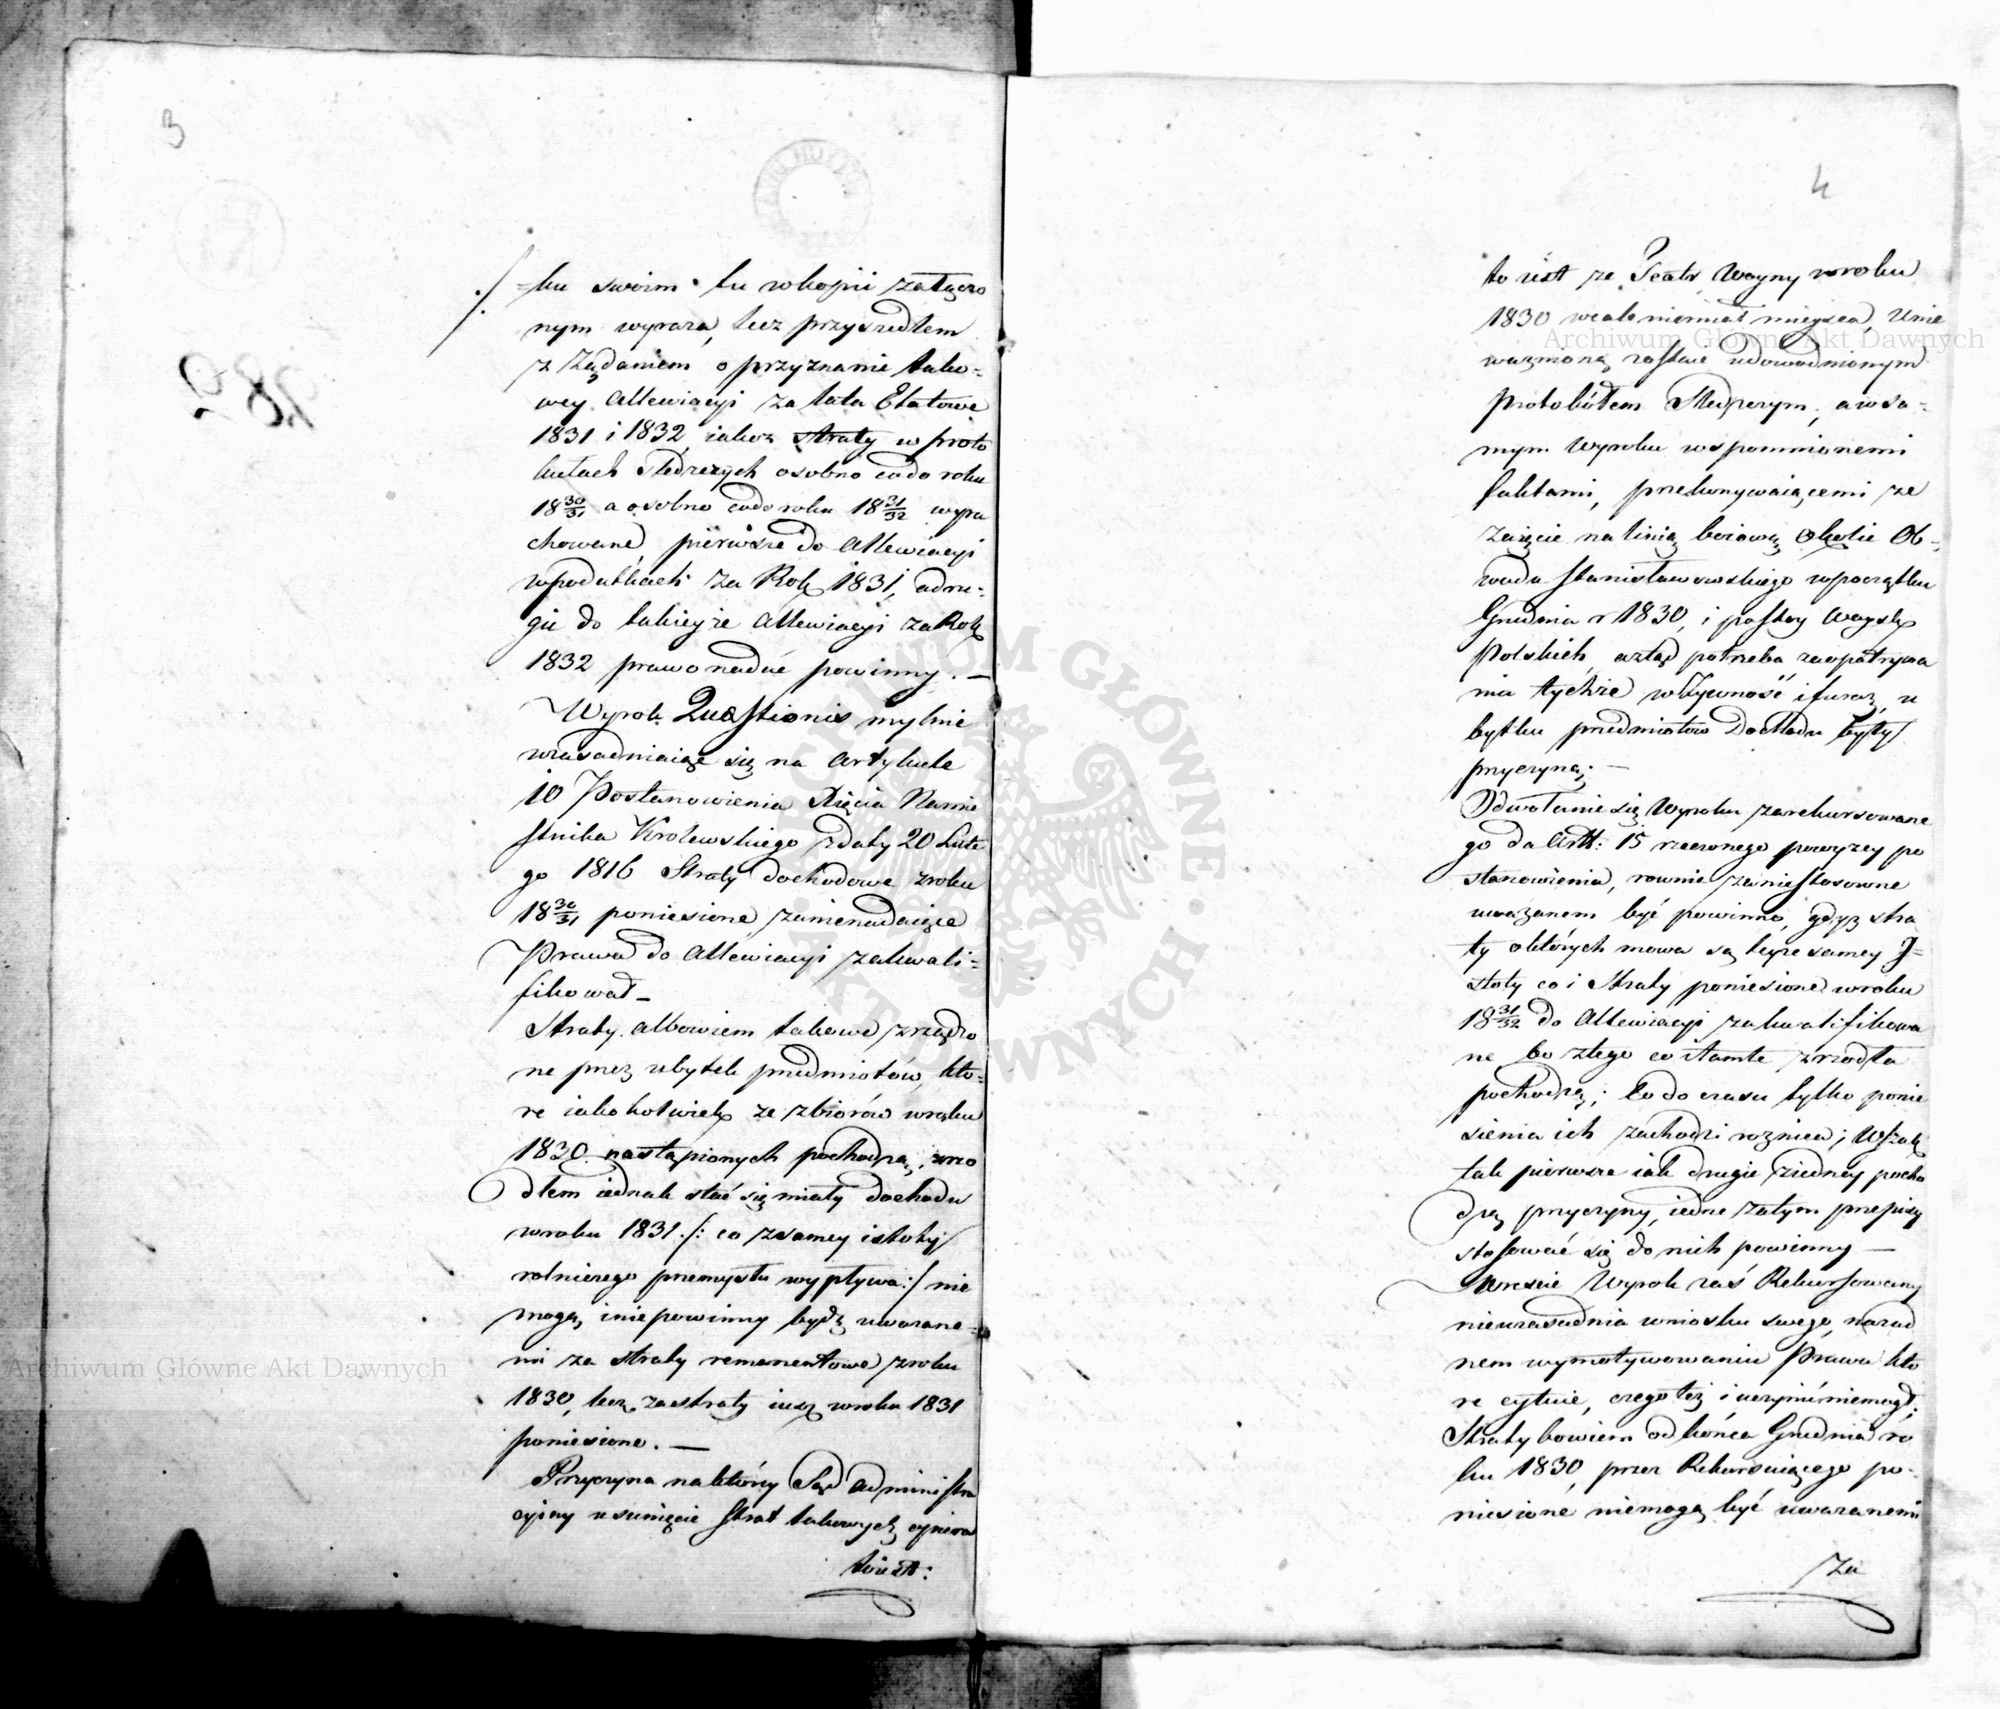 3
./. =ku swoim tu w kopii załączo
nym wyraża, lecz przyszedłem
z Żądaniem o przyznanie tako=
wey Allewiacyi za lata Etatowe
1831 i 1832, iakoż straty w proto
kułach Śledczych osobno co do roku
18 30/31 a osobno co do roku 18 31/32 wyra
chowane, pierwsze do Allewiacyi
w podatkach za Rok 1831, a dru=
gie do takieyże Allewiacyi za Rok
1832 prawo nadać powinny. —
Wyrok Quaestionis mylnie
wzasadniaiąc się na Artykule
10 Postanowienia Xięcia Namie
stnika Krolewskiego z daty 20 Lute
go 1816 Straty dochodowe z roku
18 30/31 poniesione, za nienadaiące
Prawa do Allewiacyi zakwali=
fikował —
Straty albowiem takowe zrządzo
ne przez ubytek przedmiotów, któ=
re iakokolwiek ze zbiorów w roku
1830 nastąpionych pochodzą, źrzo
dłem iednak stać się miały dochodu
w roku 1831 /: co z samey istoty
rolniczego przemysłu wypływa :/ nie
mogą i nie powinny bydź uważane=
mi za straty remanentowe z roku
1830, lecz za straty iuż w roku 1831
poniesione. —
Przyczyna na który Sąd Administra
cyiny usunięcie Strat takowych opiera
to iest:
4
to iest że Teatr Woyny w roku
1830 wcale nie miał mieysca, Unie
ważnioną zostaie udowodnionym
Protokółem Śledczym, a w sa=
mym Wyroku wspomnionemi
faktami, przekonywaiącemi że
zaięcie na linią boiową okolic Ob=
wodu Stanisławowskiego w początku
Grudnia r 1830, i postoy Woysk
Polskich, a ztąd potrzeba zaopatrywa
nia tychże w Żywność i furaż, u
bytku przedmiotów Dochodu były
przyczyną; —
Odwołanie się Wyroku zarekursowane
go do Artt: 15 rzeczonego powyżey po
stanowienia, rownie za niestosowne
uważanem być powinno, gdyż stra
ty o których mowa są teyże samey I=
stoty co i Straty poniesione w roku
18 31/32 do Allewiacyi zakwalifikowa
ne bo z tego co i tamte źrzodła
pochodzą; Co do czasu tylko ponie
sienia ich zachodzi roznica; Wszak
tak pierwsze iak drugie z iedney pocho
dzą przyczyny, iedne zatym przepisy
stosować się do nich powinny —
Wreszcie Wyrok zaś Rekursowany
nieuzasadnia wniosku swego, na zad
nem wymotywowaniu Prawa kto
re cytuie, czego też i uczynić niemogł;
Straty bowiem od końca Grudnia ro
ku 1830 przez Rekursuiącego po=
niesione niemogą być uważanemi
Za
Archiwum Główne Akt Dawnych
Archiwum Główne Akt Dawnych
ARCHIWUM GŁÓWNE · AKT DAWNYCH ·